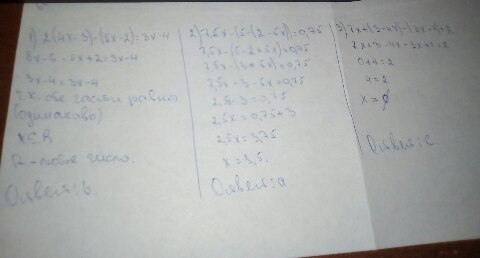 1) 2(4x-3)-(5x-2)=3x-4
8x-6-5x+2=3x-4
3x-4=3x-4
т.к. обе части равны
(одинаково)
x∈R
R - любое число.
Ответ: b
2) 7,5x-(5-(2-5x))=0,75
7,5x-(5-2+5x)=0,75
7,5x-(3+5x)=0,75
7,5x-3-5x=0,75
2,5x-3=0,75
2,5x=0,75+3
2,5x=3,75
x=1,5.
Ответ: a
3) 7x+(3-4x)-(3x-1)=2
7x+3-4x-3x+1=2
0+4=2
4=2
x=∅
Ответ: c